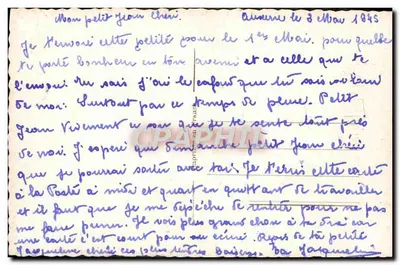 Mon petit Jean chéri. Auxerre le 3 Mai 1945
Je t'envoie cette petite pour le 1er Mai. pour quelle
te porte bonheur en ton avenir et a celle que te
l'envoi. Tu sais j'ai le cafard que tu sois loin
de moi. Surtout par ce temps de pluie. Petit
Jean Vivement ce soir que je te sente tout près
de moi. J'espère que dimanche petit Jean chéri
que je pourrai sortir avec toi. Je t'écris cette carte
à la Poste à midi et quart en quittant de travailler
et il faut que je me depeche de rentrer pour ne pas
me faire punir. Je sais plus grand chose à te dire car
une carte c'est court pour écrire. Reçois de ta petite
Jacqueline chérie ces plus tendres baisers. Ta Jacqueline
CPARPHIL